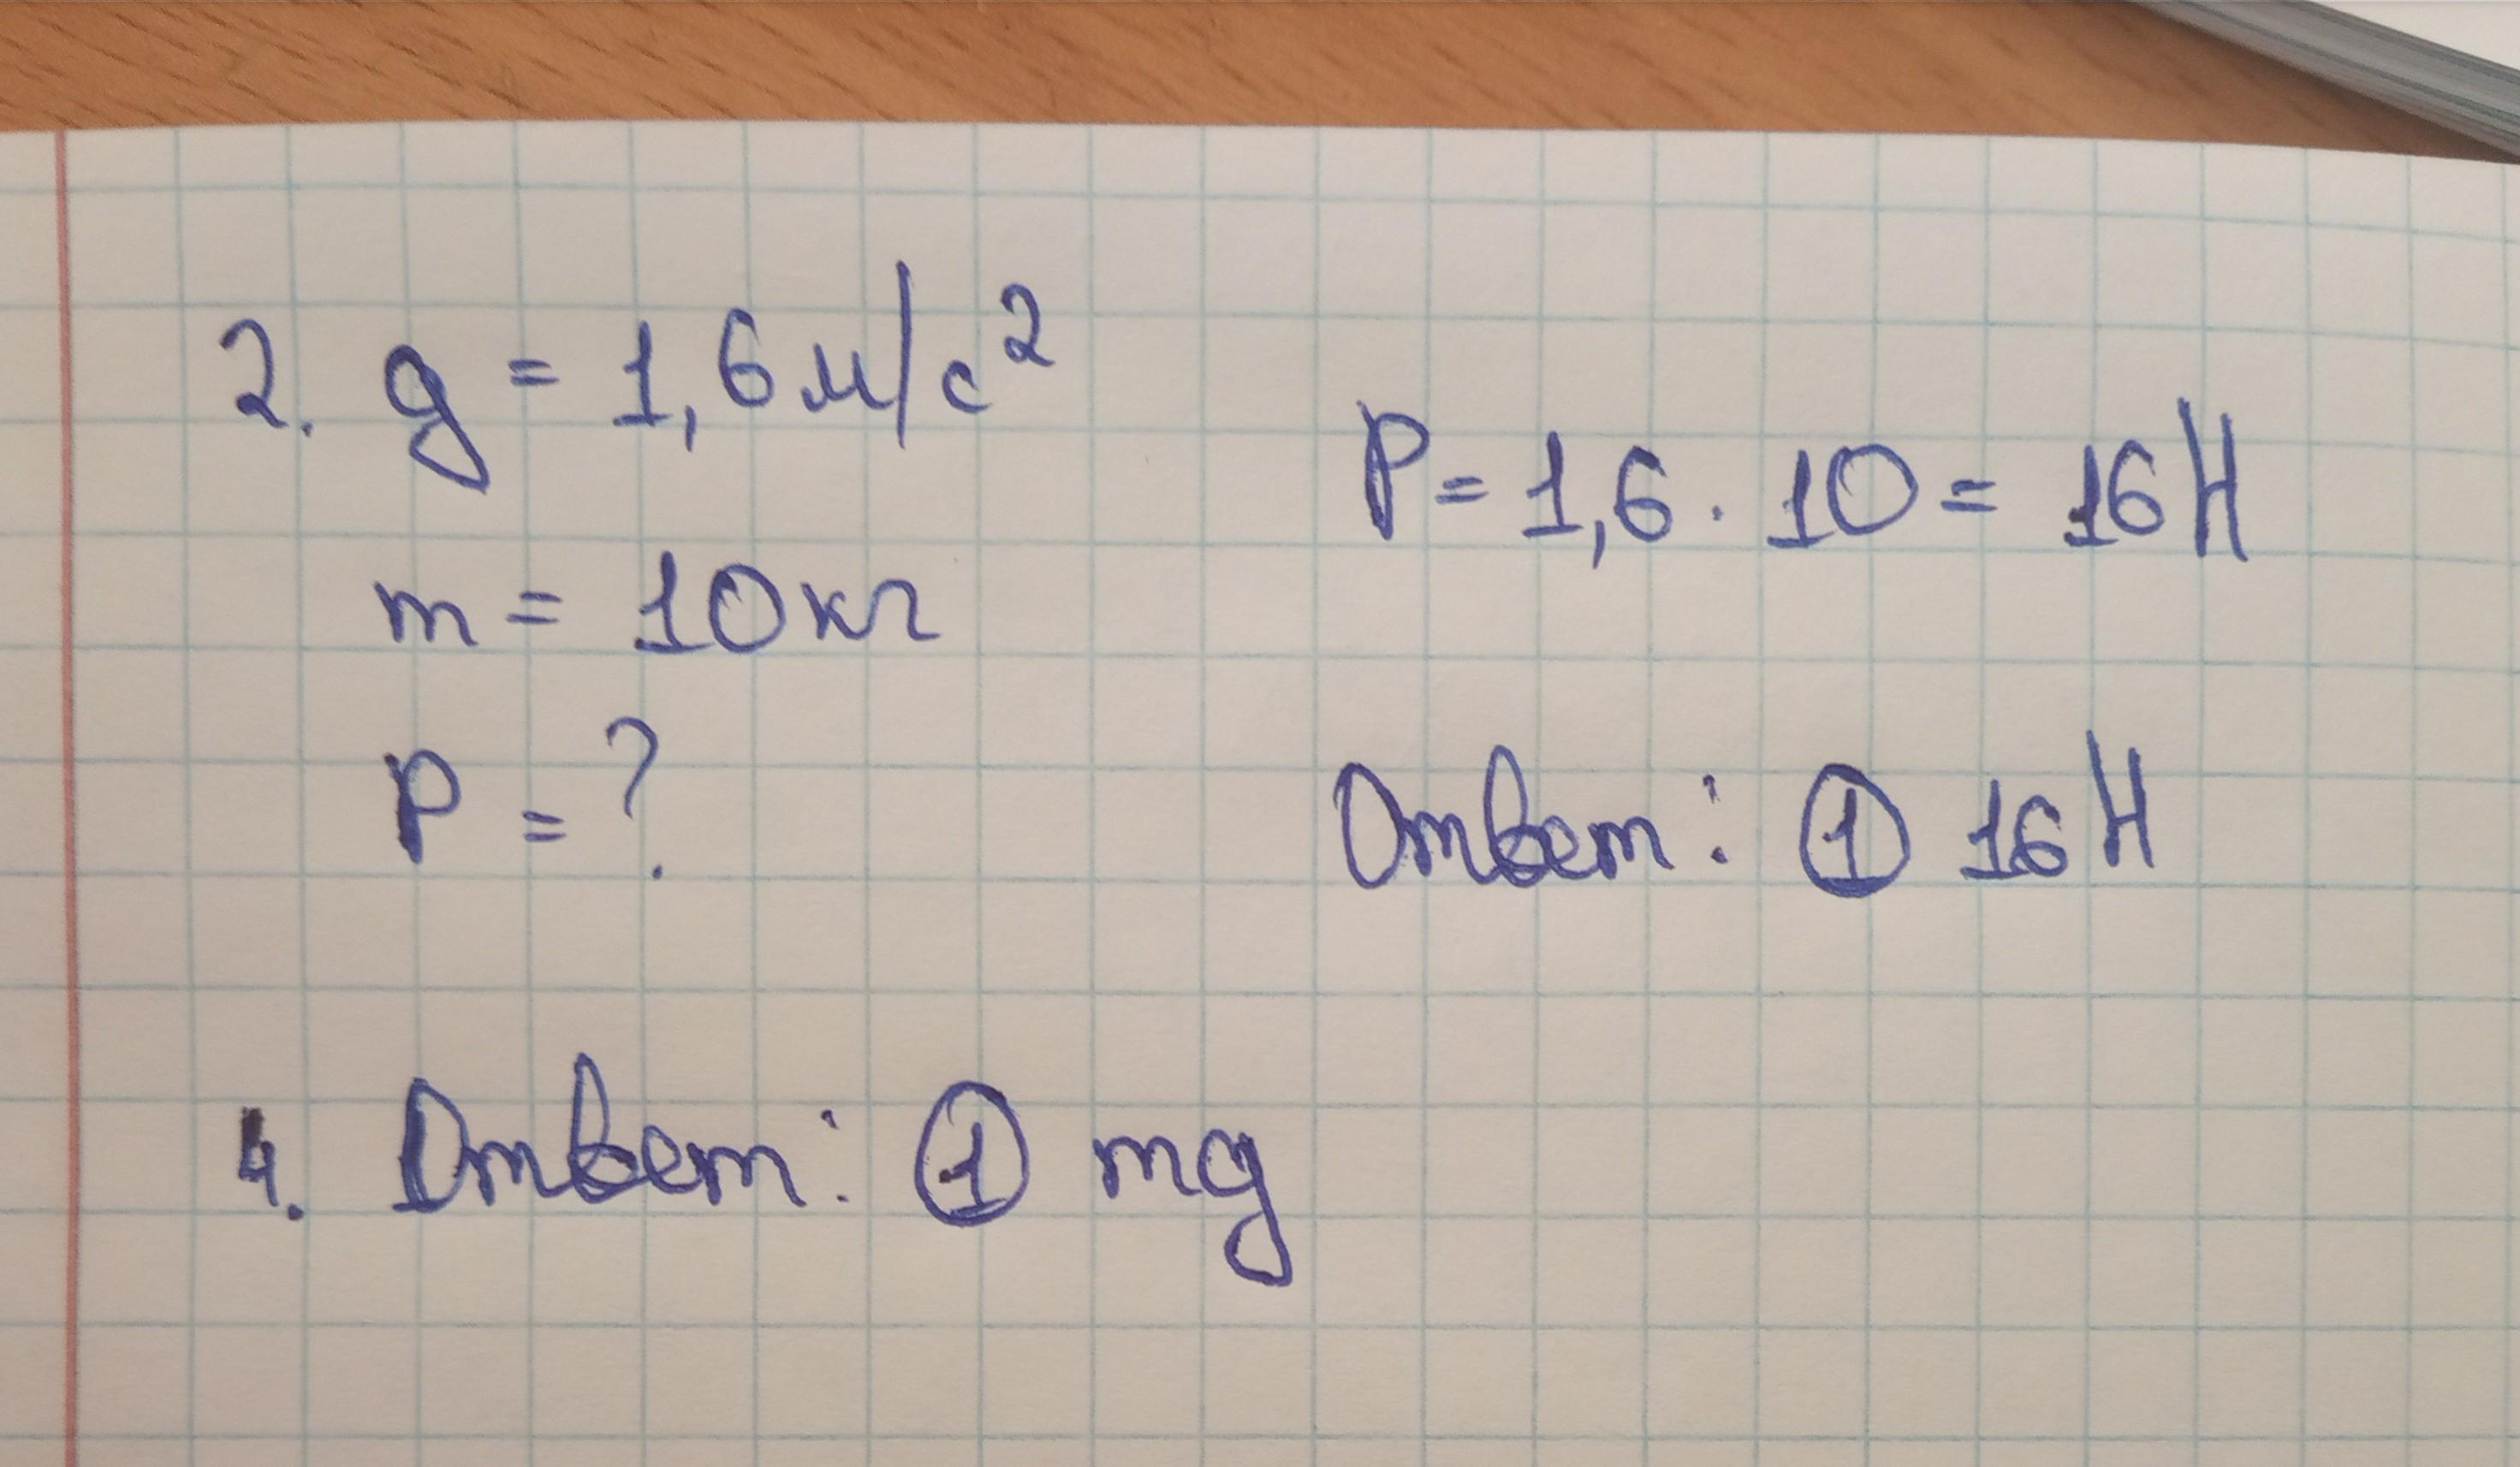 2. g = 1,6 м/с²
m = 10 кг
P = ?
P = 1,6 · 10 = 16 Н
Ответ: ① 16 Н
4. Ответ: ① mg